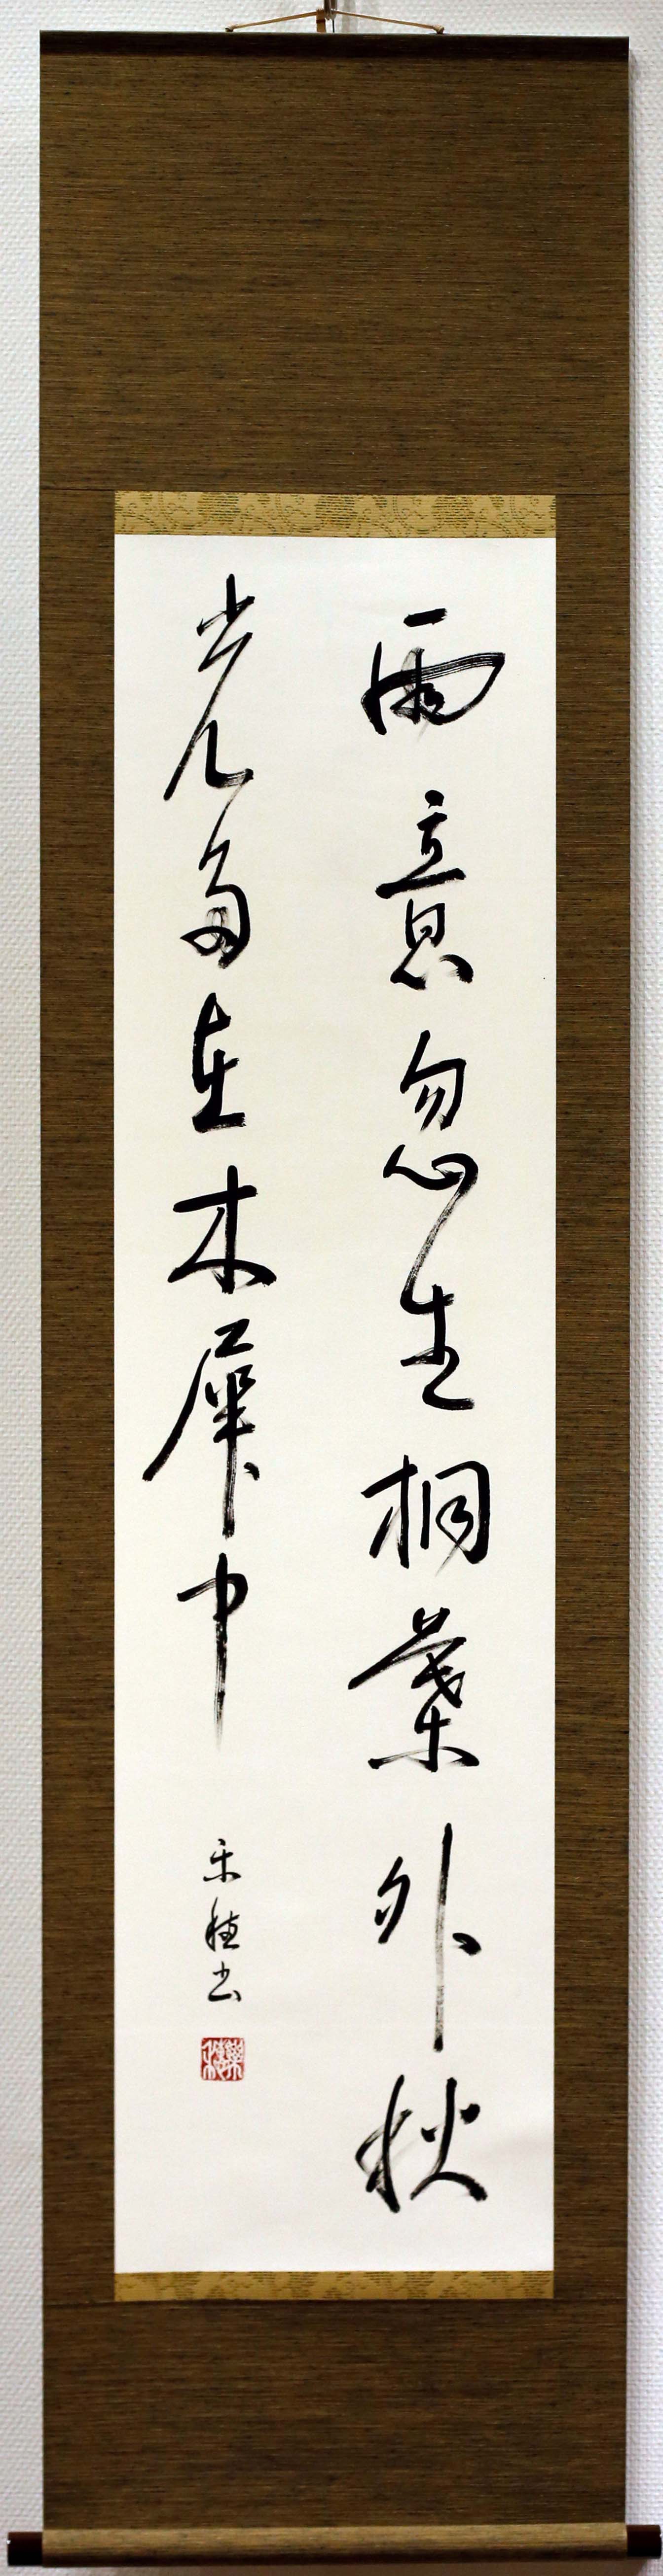 雨意忽生桐葉外秋
光多在木犀中